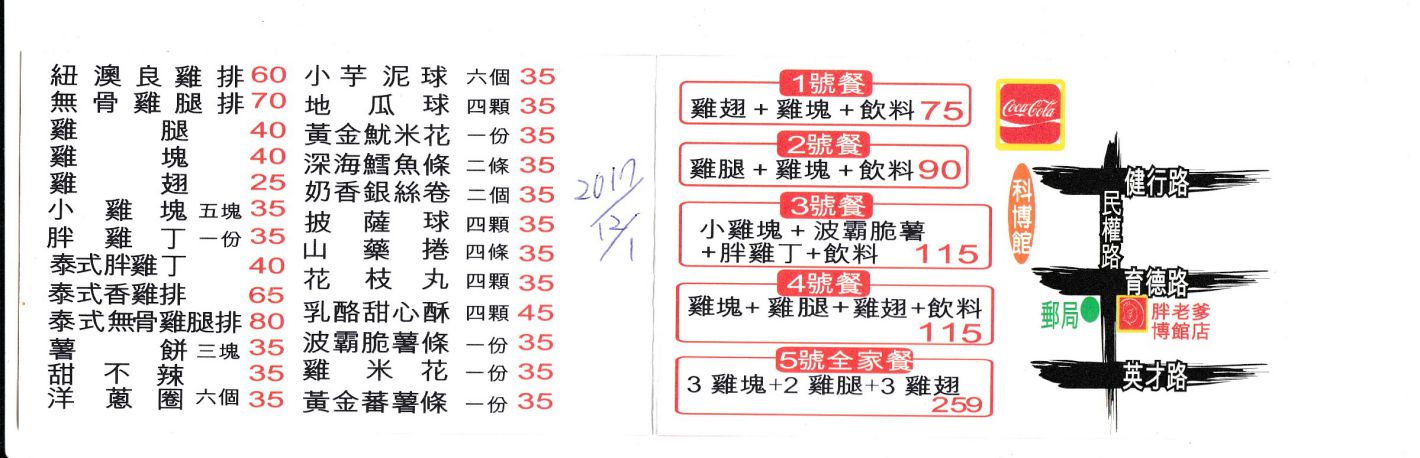 紐澳良雞排 60
無骨雞腿排 70
雞腿 40
雞塊 40
雞翅 25
小雞塊 五塊 35
胖雞丁 一份 35
泰式胖雞丁 40
泰式香雞排 65
泰式無骨雞腿排 80
薯餅 三塊 35
甜不辣 35
洋蔥圈 六個 35
小芋泥球 六個 35
地瓜球 四顆 35
黃金魷米花 一份 35
深海鱈魚條 二條 35
奶香銀絲卷 二個 35
披薩球 四顆 35
山藥捲 四條 35
花枝丸 四顆 35
乳酪甜心酥 四顆 45
波霸脆薯條 一份 35
雞米花 一份 35
黃金蕃薯條 一份 35
2017
12/1
1號餐
雞翅+雞塊+飲料 75
2號餐
雞腿+雞塊+飲料 90
3號餐
小雞塊+波霸脆薯
+胖雞丁+飲料 115
4號餐
雞塊+雞腿+雞翅+飲料
115
5號全家餐
3雞塊+2雞腿+3雞翅
259
Coca-Cola
科博館
健行路
民權路
育德路
郵局
胖老爹
博館店
英才路